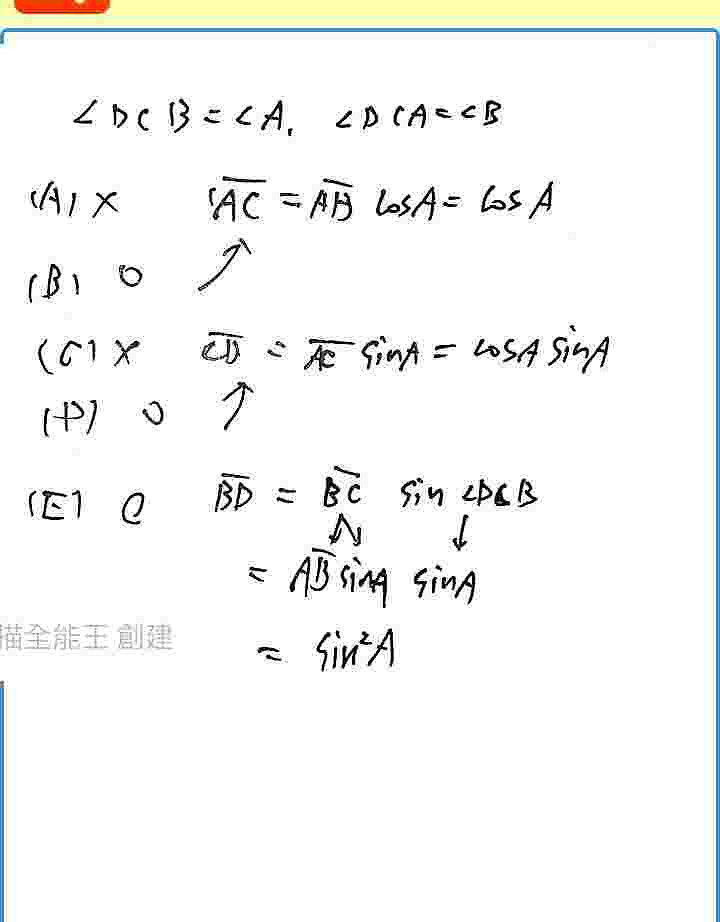 ∠DCB=∠A, ∠DCA=∠B
(A) × AC = AB cosA = cos A
(B) ○ ↗
(C) × CD = AC sinA = cosA sinA
(D) ○ ↗
(E) ○ BD = BC sin ∠DCB
= AB sinA sinA
= sin²A
描全能王 創建